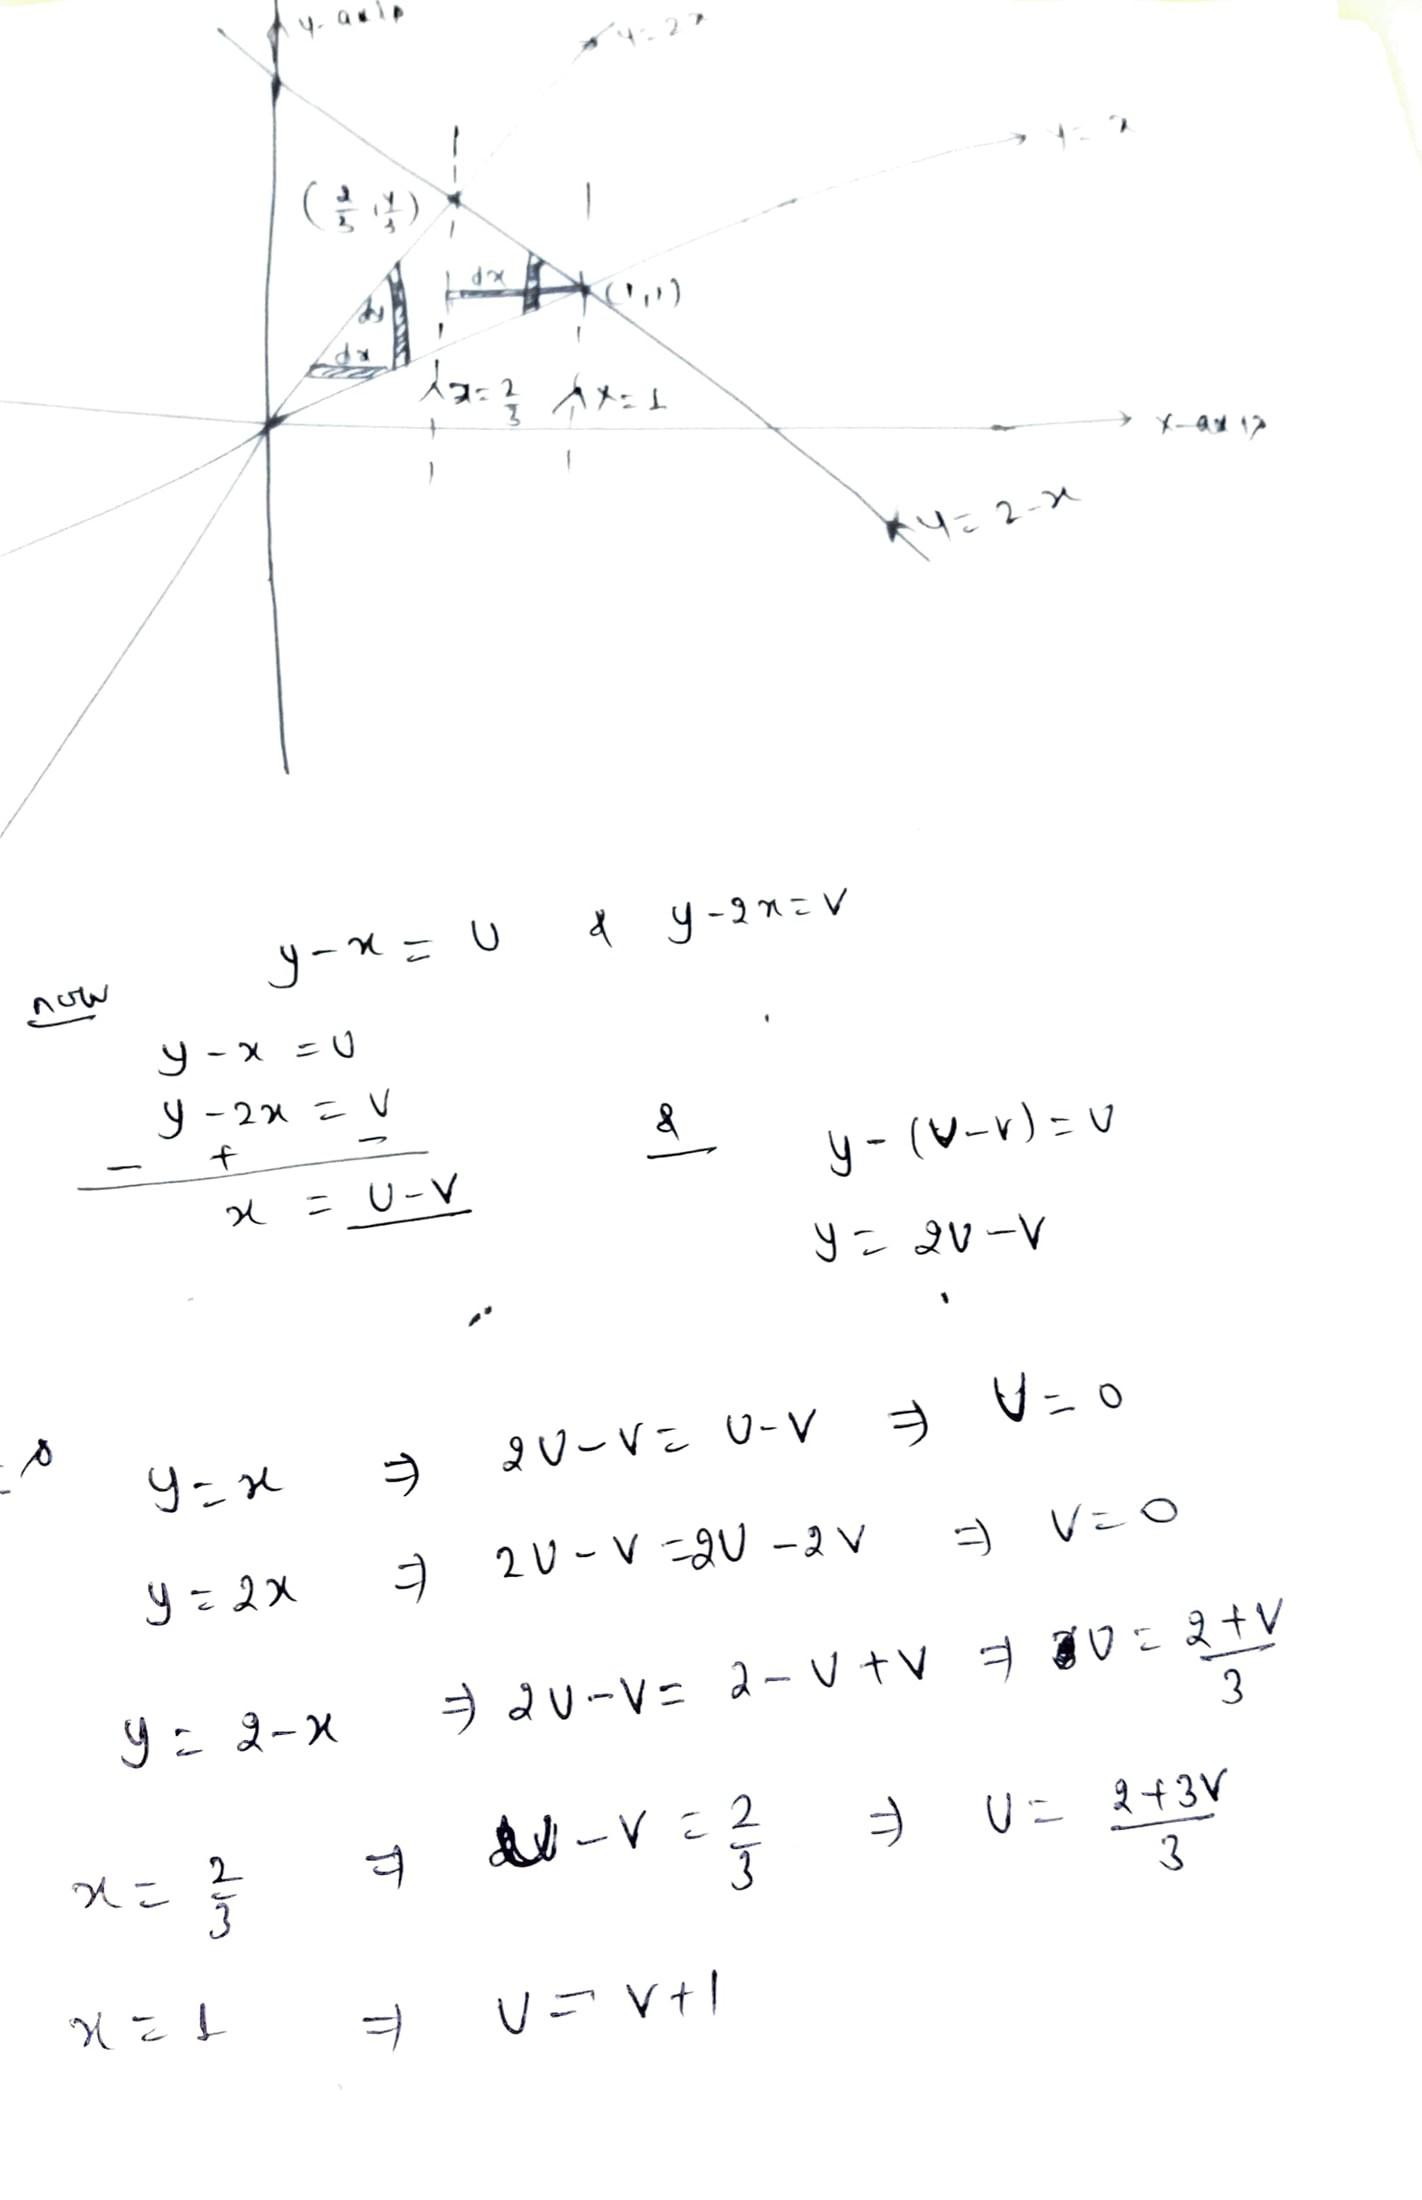 y-axis
y=2x
y=x
(2/3, 4/3)
dx
(1,1)
dy
dx
x=2/3 x=1
x-axis
y=2-x
y-x=U & y-2x=V
now
y-x=U
y-2x=V
- + -
x = U-V
& y-(U-V)=U
y=2U-V
y=x ⇒ 2U-V=U-V ⇒ U=0
y=2x ⇒ 2U-V=2U-2V ⇒ V=0
y=2-x ⇒ 2U-V=2-U+V ⇒ U=2+V/3
x=2/3 ⇒ U-V=2/3 ⇒ U=2+3V/3
x=1 ⇒ U=V+1